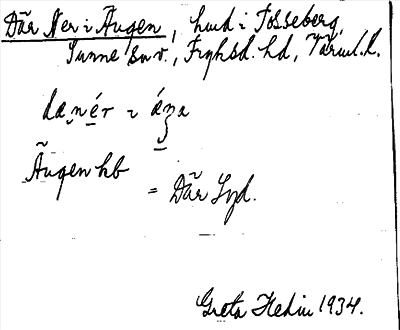 Där Ner i Ängen, hmd i Tosseberg,
Sunne sn v., Fryksd. hd, Värml. l.
da nér i áŋa
Ängen hb
= Där Syd.
Greta Hedin 1934.